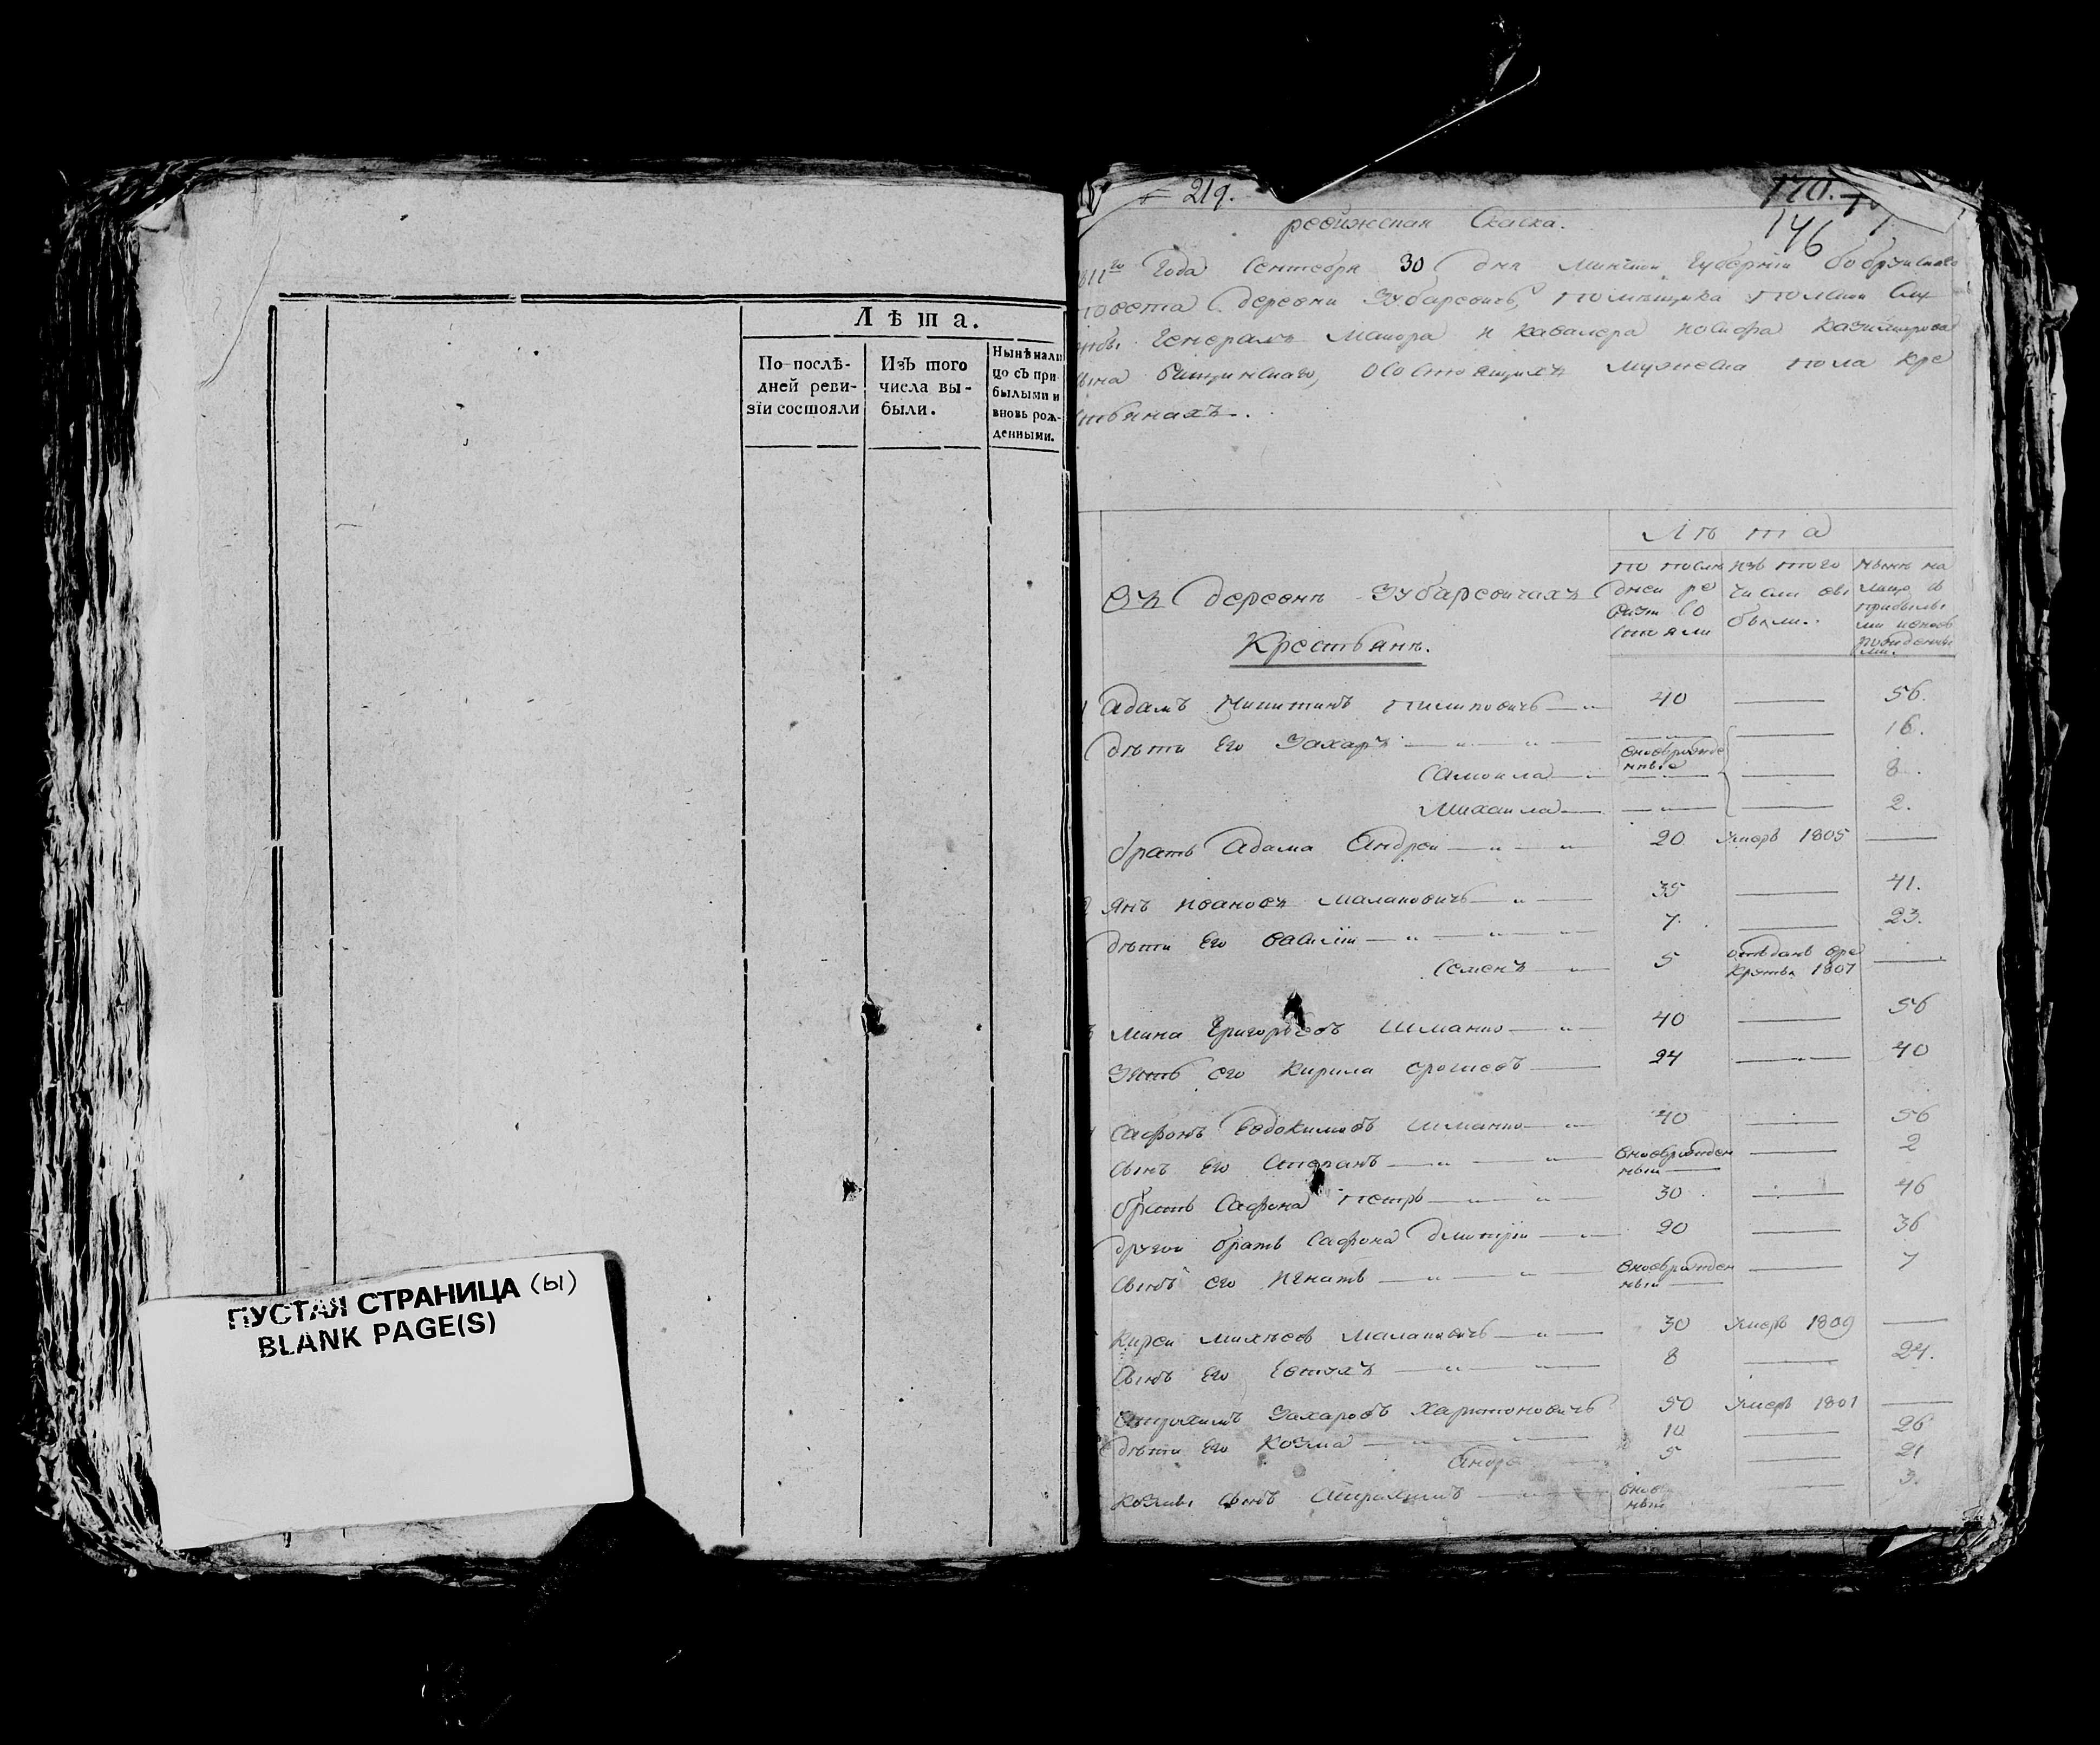 Лѣта.
По послѣ-
дней реви-
зіи состояли
Изъ того
числа вы-
были.
Нынѣ нали
цо съ при
былыми и
вновь рож-
денными.
ПУСТАЯ СТРАНИЦА (ы)
BLANK PAGE(S)
219.
170.
146
ревижская Скаска.
Года Сентебря 30 дня Минской Губерніи бобруйскаго
повета деревни Зубаревичъ, помѣщика польской
Генералъ Маиора и Кавалера иосифа Казимирова
сына Бищинскаго, Осостоящихъ мужеска пола кре
стьянахъ.
Лѣта
по после
дней ре
визіи со
стояли
изъ того
числа вы
были.
нынѣ на
лицо съ
прибылы
ми и вновь
рожденны
ми.
Въ деревнѣ Зубаревичахъ
Крестьянъ.
1 Адамъ Микитинъ Пилиповичъ 40 56.
дѣти его Захаръ вновьрожде 16.
нные
Самоила 8.
Михаила 2.
братъ Адама Андрей 20 умеръ 1805
2 Янъ Ивановъ Малановичъ 35 41.
дѣти его Василій 7. 23.
Семенъ 5 отъданъ вре
круты 1807
3 Мина Григорьевъ Шманко 40 56
Зять его Кирила 24 40
Сафонъ Евдокимовъ Шманко 40 56
сынъ его Степанъ вновьрожден 2
ный
братъ Сафона Петръ 30 46
другой братъ Сафона Дмитрій 20 36
сынъ его Игнатъ вновьрожден 7
ный
Кирей Михѣевъ Малановичъ 30 умеръ 1809
сынъ его Евтухъ 8 24.
Захаровъ Харитоновичъ 50 умеръ 1801
дѣти его Козма 10 26
Андре 5 21
Козмы сынъ внов 3.
ный